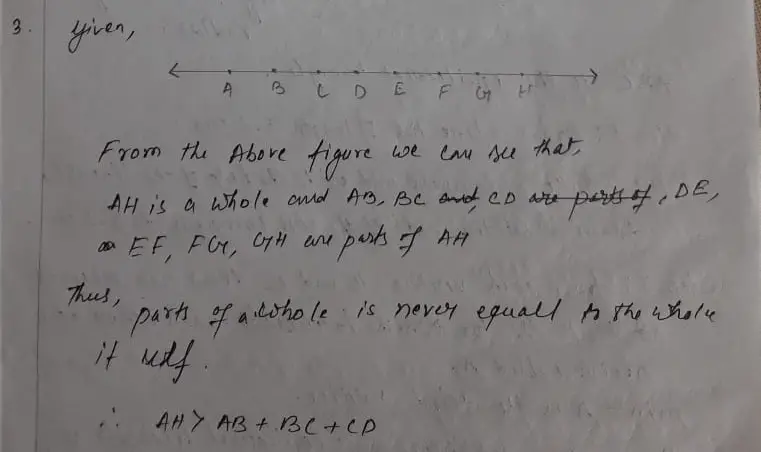 3. Given,
A B C D E F G H
From the Above figure we can see that,
AH is a whole and AB, BC and, CD are parts of, DE,
EF, FG, GH are parts of AH
Thus,
parts of a whole is never equall to the whole
it self.
∴ AH > AB + BC + CD